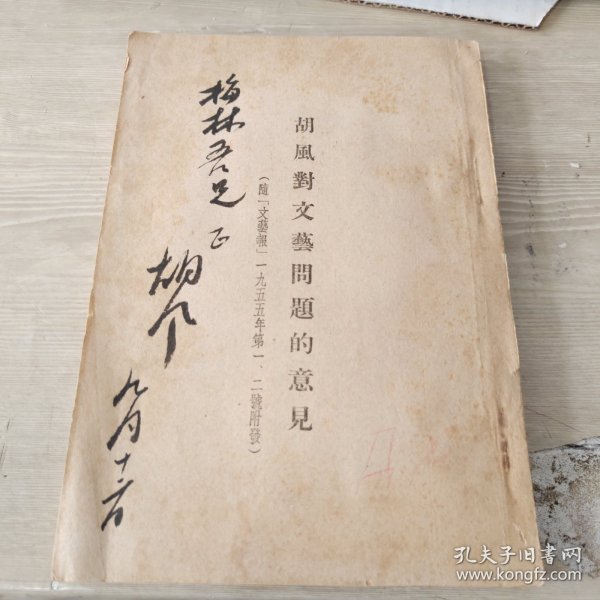 胡風對文藝問題的意見
（隨「文藝報」一九五五年第一、二號附發）
梅林吾兄 正
胡风
九月十六日
孔夫子旧书网
www.kongfz.com